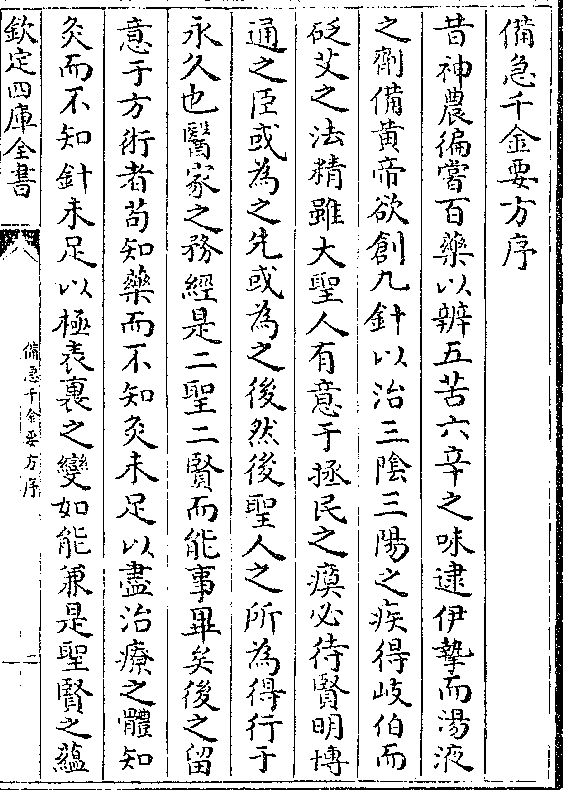 備急千金要方序
昔神農徧嘗百藥以辨五苦六辛之味逮伊摯而湯液
之劑備黃帝欲創九針以治三陰三陽之疾得岐伯而
砭艾之法精雖大聖人有意于拯民之瘼必待賢明博
通之臣或為之先或為之後然後聖人之所為得行于
永久也醫家之務經是二聖二賢而能事畢矣後之留
意于方術者苟知藥而不知灸未足以盡治療之體知
灸而不知針未足以極表裏之變如能兼是聖賢之蘊
欽定四庫全書
備急千金要方序
一